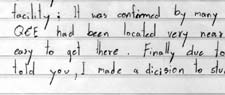 facility; It was confirmed by many
QCE had been located very near
easy to get there. Finally due to
told you, I made a dicision to stu